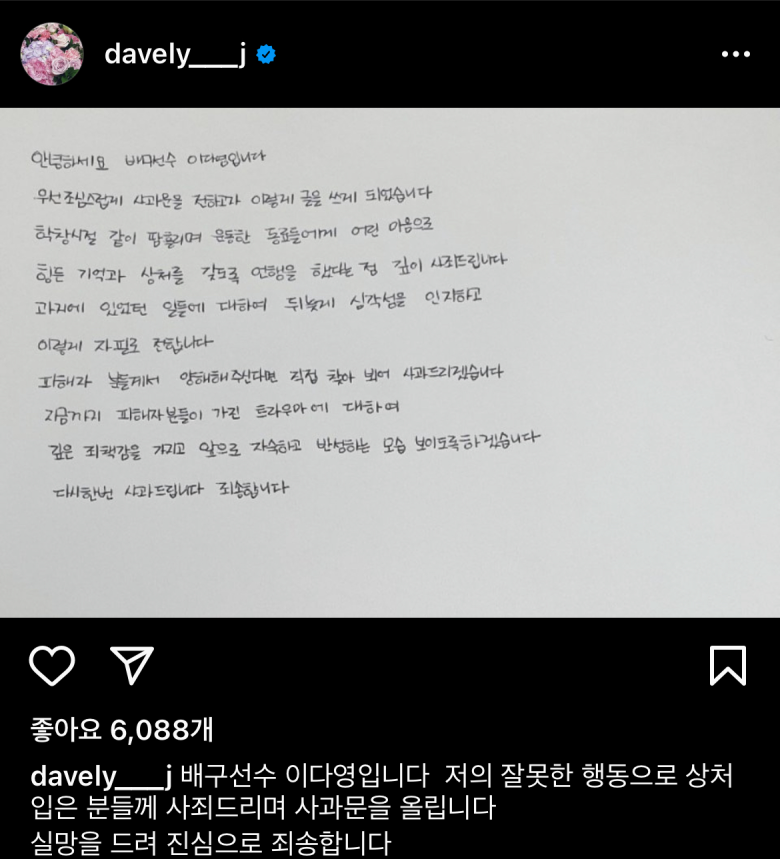 davely___j
안녕하세요 배구선수 이다영입니다
우선 조심스럽게 사과문을 전하고자 이렇게 글을 쓰게 되었습니다
학창시절 같이 땀흘리며 운동한 동료들에게 어린 마음으로
힘든 기억과 상처를 갖도록 언행을 했다는 점 깊이 사죄드립니다
과거에 있었던 일들에 대하여 뒤늦게 심각성을 인지하고
이렇게 자필로 전합니다
피해자 분들께서 양해해주신다면 직접 찾아 뵈어 사과드리겠습니다
지금까지 피해자분들이 가진 트라우마에 대하여
깊은 죄책감을 가지고 앞으로 자숙하고 반성하는 모습 보이도록하겠습니다
다시한번 사과드립니다 죄송합니다
좋아요 6,088개
davely___j 배구선수 이다영입니다 저의 잘못한 행동으로 상처
입은 분들께 사죄드리며 사과문을 올립니다
실망을 드려 진심으로 죄송합니다